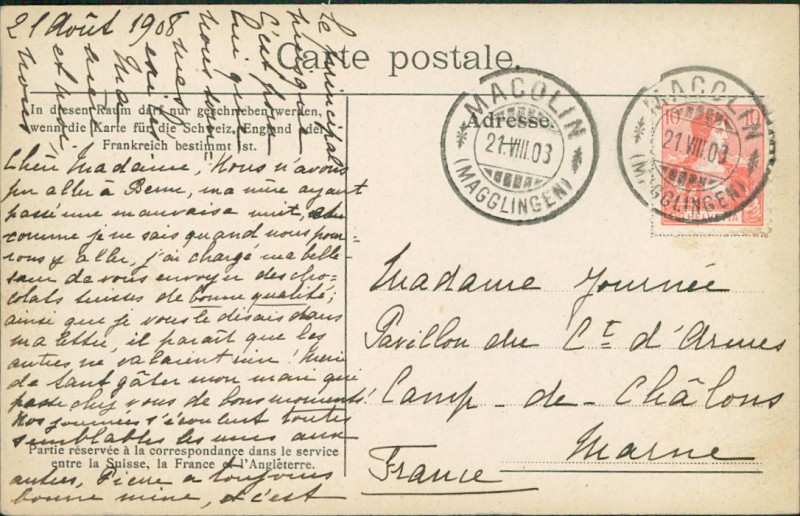 21 Août 1908
Carte postale.
In diesem Raum darf nur geschrieben werden,
wenn die Karte für die Schweiz, England oder
Frankreich bestimmt ist.
Adresse.
MACOLIN
21.VIII.03
(MAGGLINGEN)
MACOLIN
21.VIII.03
(MAGGLINGEN)
10 10
HELVETIA
Chère Madame, Nous n'avons
pu aller à Berne, ma mère ayant
passé une mauvaise nuit,
comme je ne sais quand nous pour-
rons y aller, j'ai chargé ma belle-
sœur de vous envoyer des cho-
colats suisses de bonne qualité;
ainsi que je vous le disais dans
ma lettre, il paraît que les
autres ne valaient rien! Merci
de tant gâter mon mari qui
passe chez vous de bons moments!
Nos journées s'écoulent toutes
semblables les unes aux
Partie réservée à la correspondance dans le service
entre la Suisse, la France et l'Angleterre.
autres, Pierre a toujours
bonne mine, et c'est
le principal
puisque
c'est pour
lui que
nous
Madame Journée
Pavillon du Ct d'Armes
Camp-de-Châlons
Marne
France